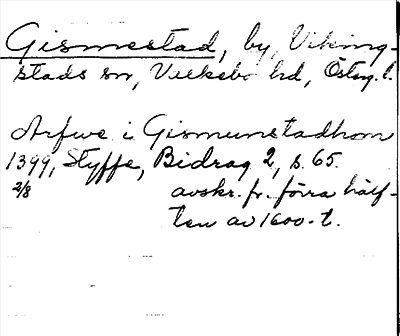 Gismestad, by, Viking-
stads sn, Valkebo hd, Östg. l.
Arfwe i Gismunstadhom
1399, Styffe, Bidrag 2, s. 65.
2/8 avskr. fr. förra hälf-
ten av 1600-t.